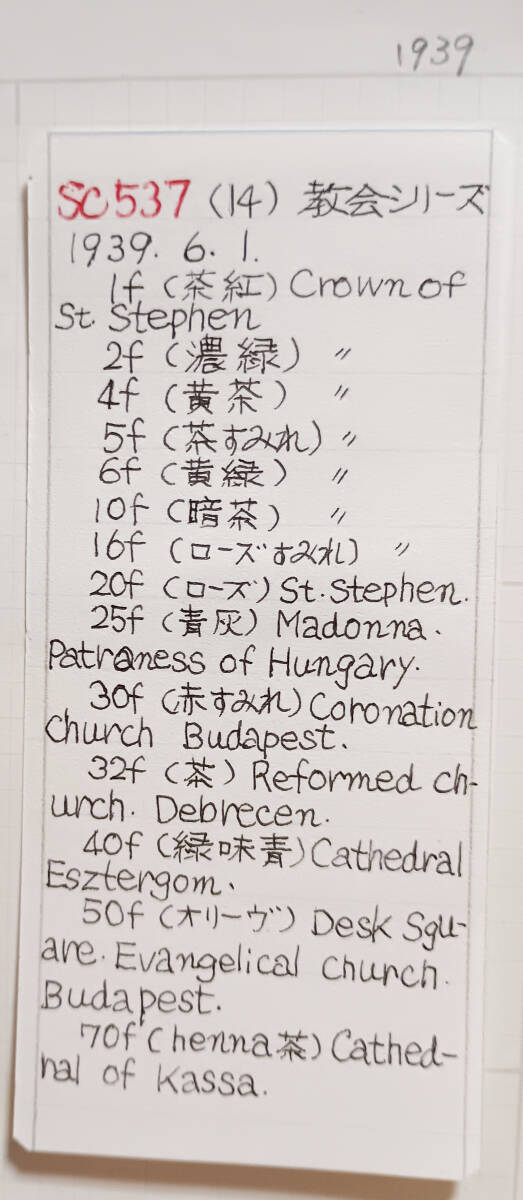 1939
SC537 (14) 教会シリーズ
1939. 6. 1.
1f (茶紅) Crown of
St. Stephen
2f (濃緑) 〃
4f (黄茶) 〃
5f (茶すみれ) 〃
6f (黄緑) 〃
10f (暗茶) 〃
16f (ローズすみれ) 〃
20f (ローズ) St. Stephen.
25f (青灰) Madonna.
Patroness of Hungary.
30f (赤すみれ) Coronation
Church Budapest.
32f (茶) Reformed ch-
urch. Debrecen.
40f (緑味青) Cathedral
Esztergom.
50f (オリーヴ) Desk Squ-
are. Evangelical Church.
Budapest.
70f (henna茶) Cathed-
nal of Kassa.